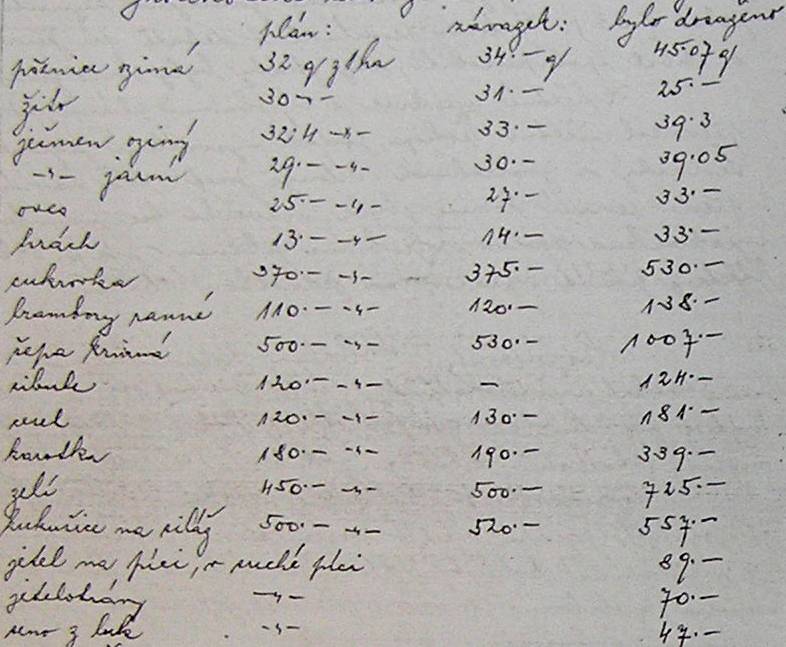 plán: závazek: bylo dosaženo
pšenice ozimá 32 q z 1 ha 34·— q 45·07 q
žito 30 -"- 31·— 25·—
ječmen ozimý 32·4 -"- 33·— 39·3
-"- jarní 29·— -"- 30·— 39·05
oves 25·— -"- 27·— 33·—
hrách 13·— -"- 14·— 33·—
cukrovka 370·— -"- 375·— 530·—
brambory ranné 110·— -"- 120·— 138·—
řepa krmná 500·— -"- 530·— 1007·—
cibule 120·— -"- — 124·—
120·— -"- 130·— 181·—
karotka 180·— -"- 190·— 339·—
zelí 450·— -"- 500·— 725·—
kukuřice na siláž 500·— -"- 520·— 557·—
jetel na píci, v suché píci 89·—
jetelotrávy -"- 70·—
seno z luk -"- 47·—